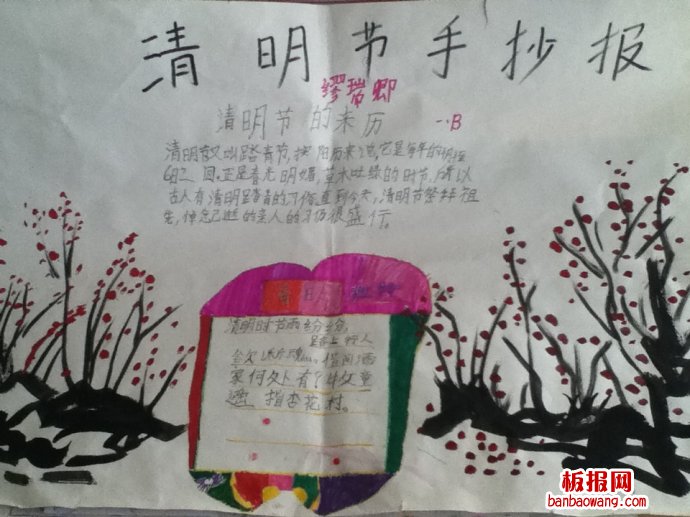 清明节手抄报
缪瑞卿
清明节的来历
一.B
清明节又叫踏青节,按阳历来说,它是每年的
日之间,正是春光明媚,草木吐绿的时节,所以
古人有清明踏青的习俗。直到今天,清明节祭拜祖
先,悼念已逝的亲人的习俗很盛行。
清明时节雨纷纷,
路上行人
欲断魂。借问酒
家何处有?牧童
遥指杏花村。
板报网
banbaowang.com